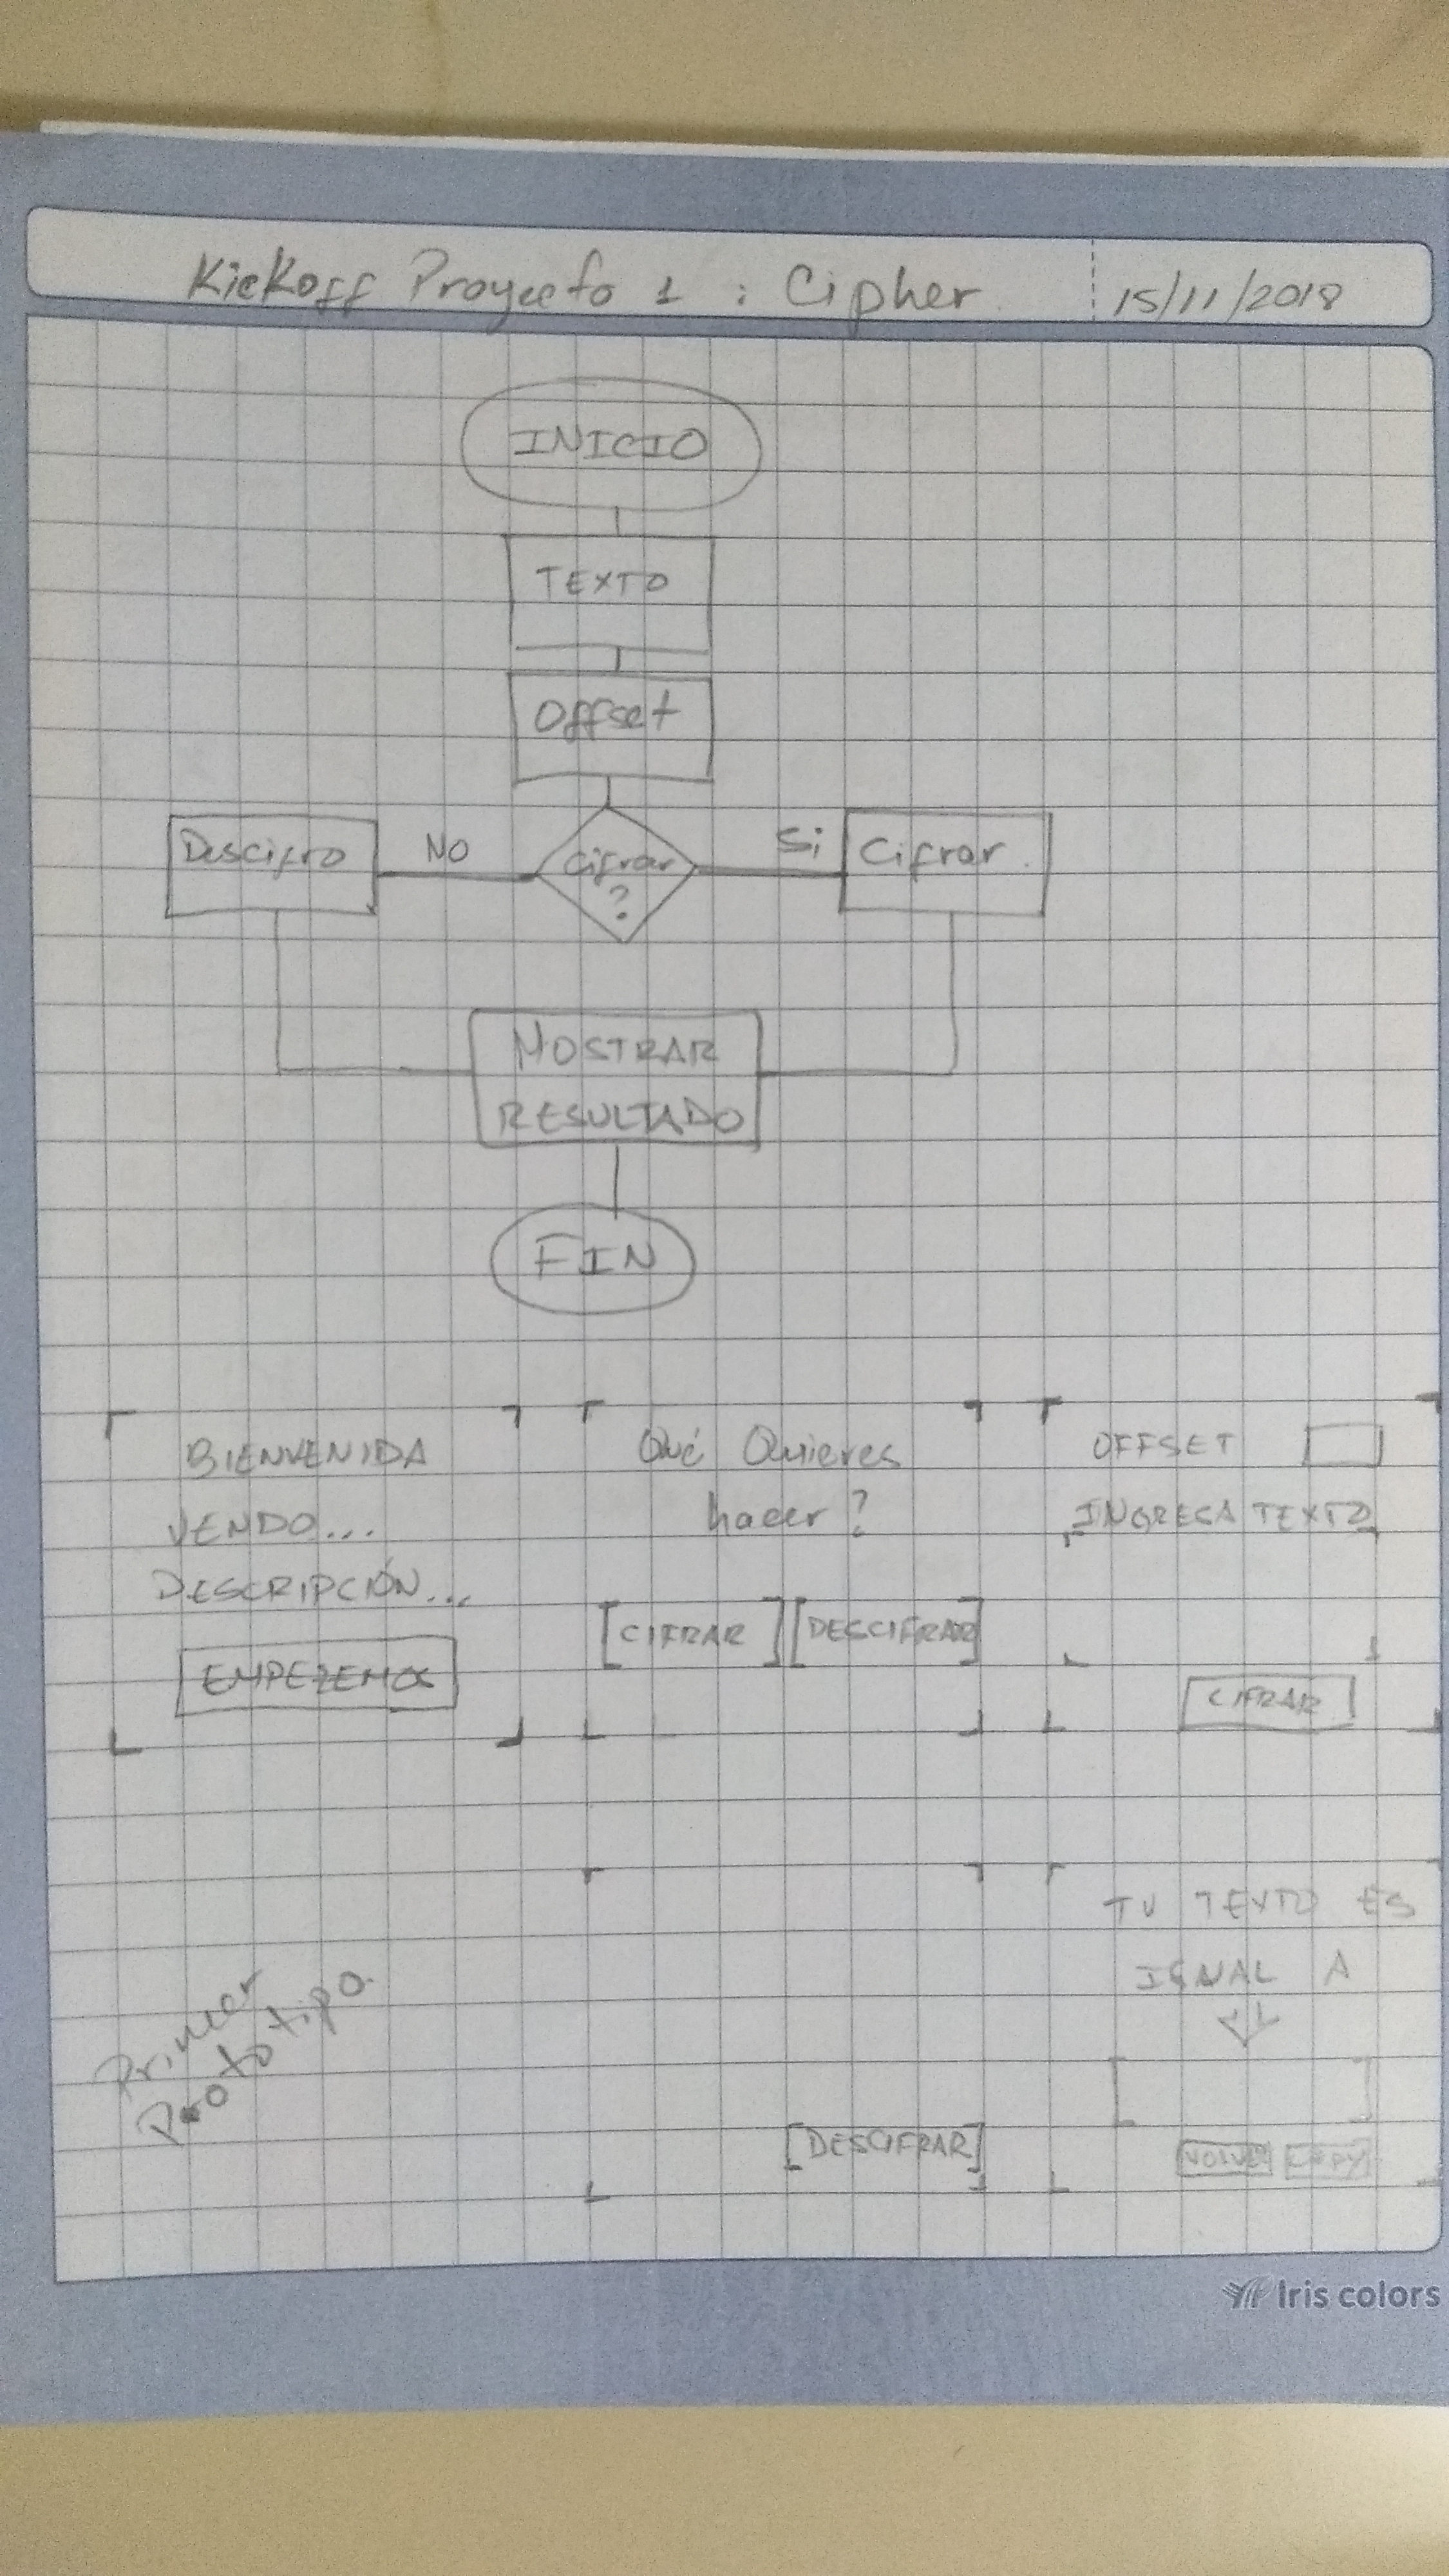 Kickoff Proyecto 1 : Cipher 15/11/2018
INICIO
TEXTO
Offset
Descifro NO Cifrar Si Cifrar.
?
MOSTRAR
RESULTADO
FIN
BIENVENIDA
VENDO...
DESCRIPCIÓN...
EMPEZEMOS
Qué Quieres
hacer?
[CIFRAR] [DESCIFRAR]
OFFSET
INGRESA TEXTO
CIFRAR
Primer
Prototipo.
[DESCIFRAR]
TU TEXTO ES
IGUAL A
COPY
Iris colors